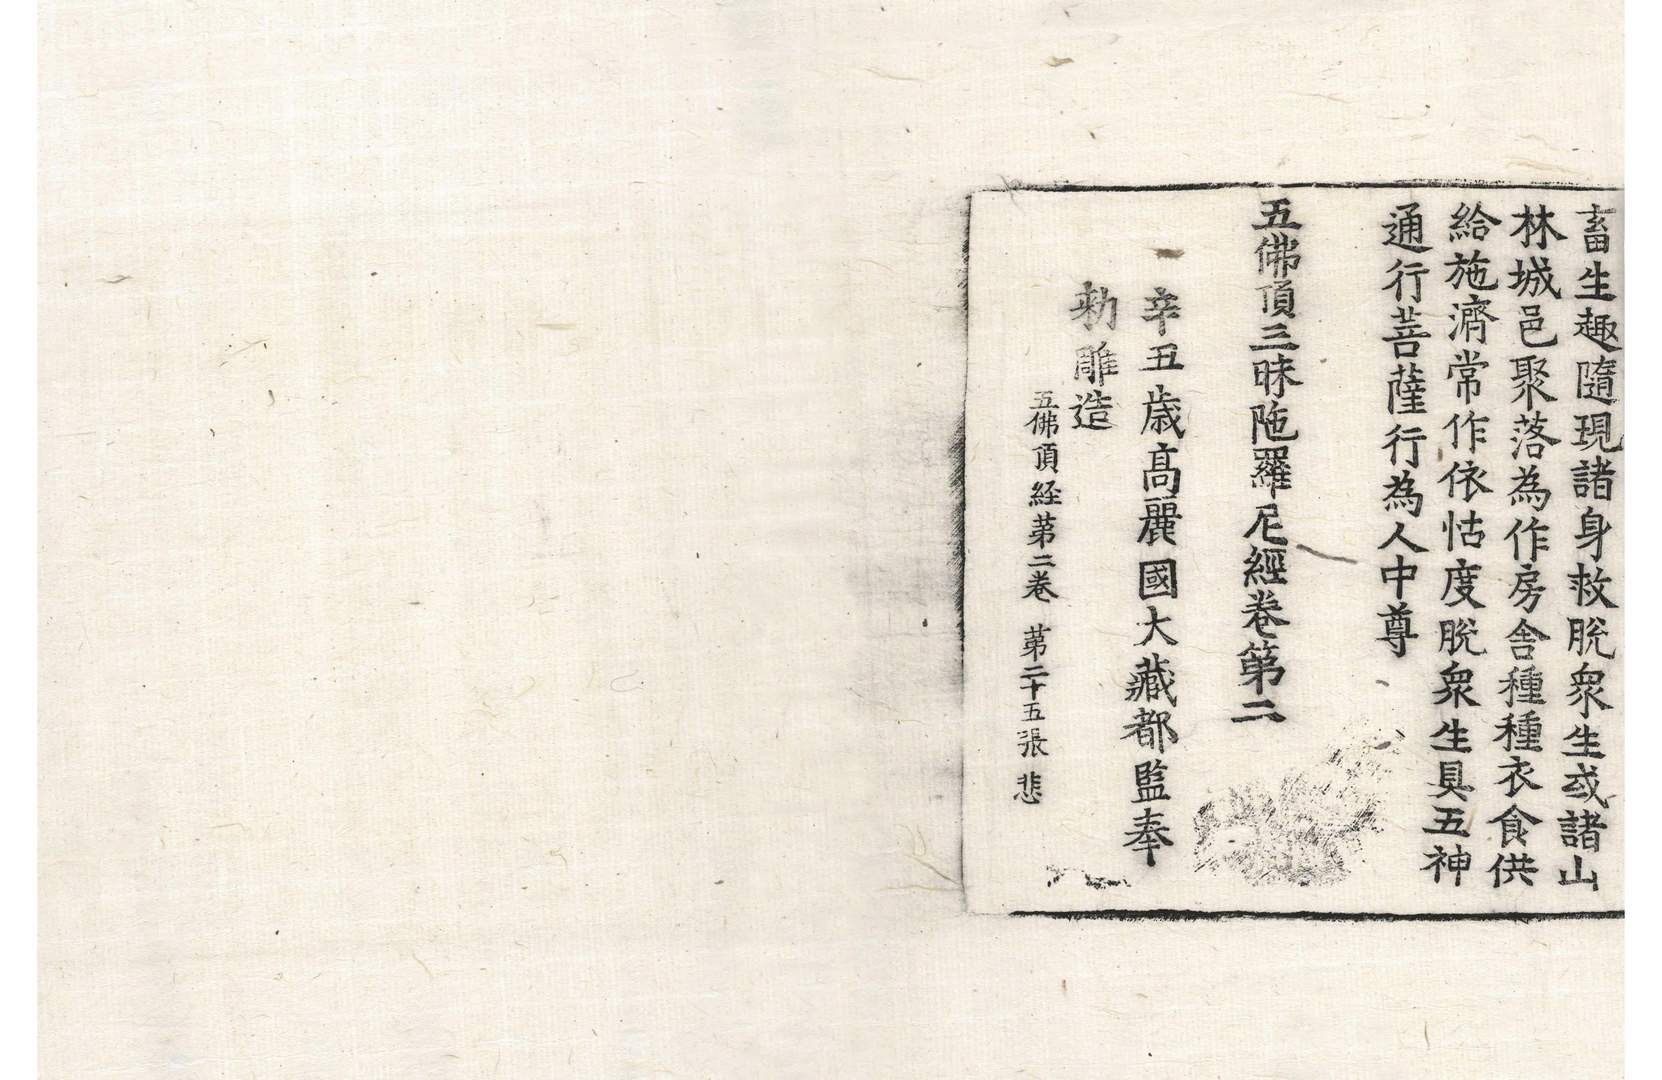 畜生趣隨現諸身救脫衆生或諸山
林城邑聚落為作房舍種種衣食供
給施濟常作依怙度脫衆生具五神
通行菩薩行為人中尊
五佛頂三昧陁羅尼經卷第二
辛丑歳高麗國大藏都監奉
勑雕造
五佛頂経苐二卷 苐二十五張 悲